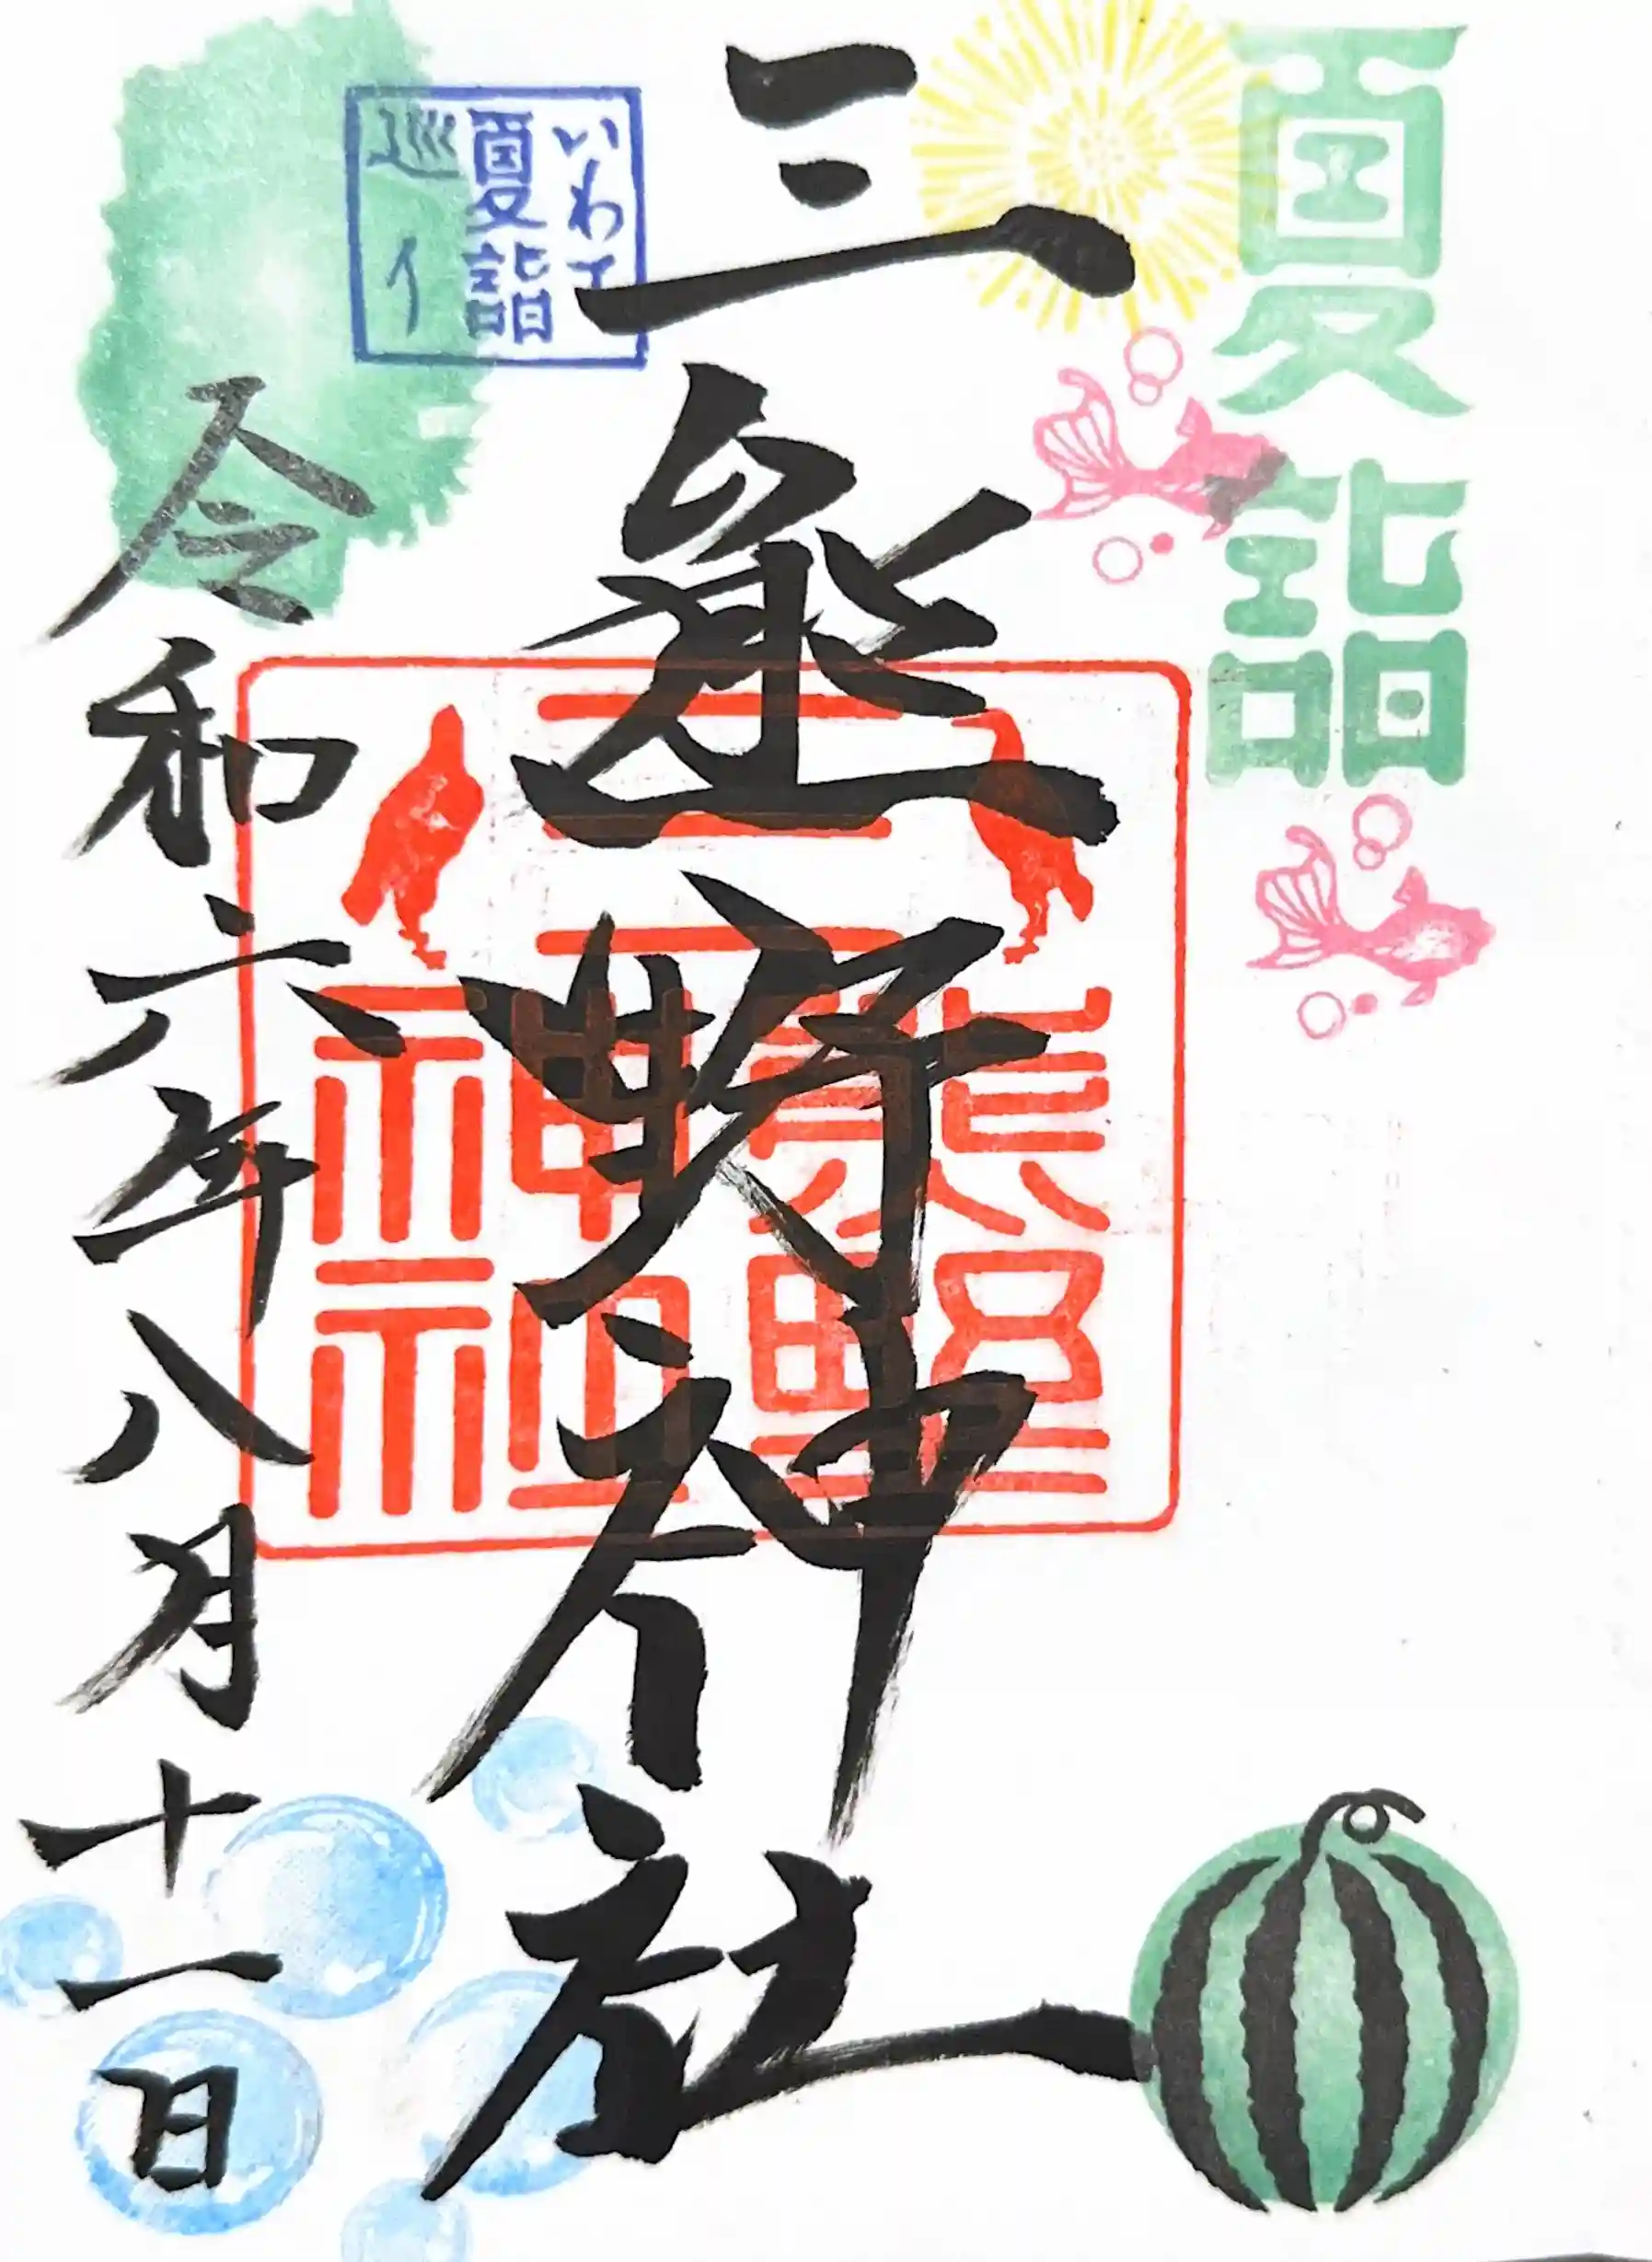 夏詣
三熊野神社
三熊野神社
いわて
夏詣
巡り
令和六年八月十一日